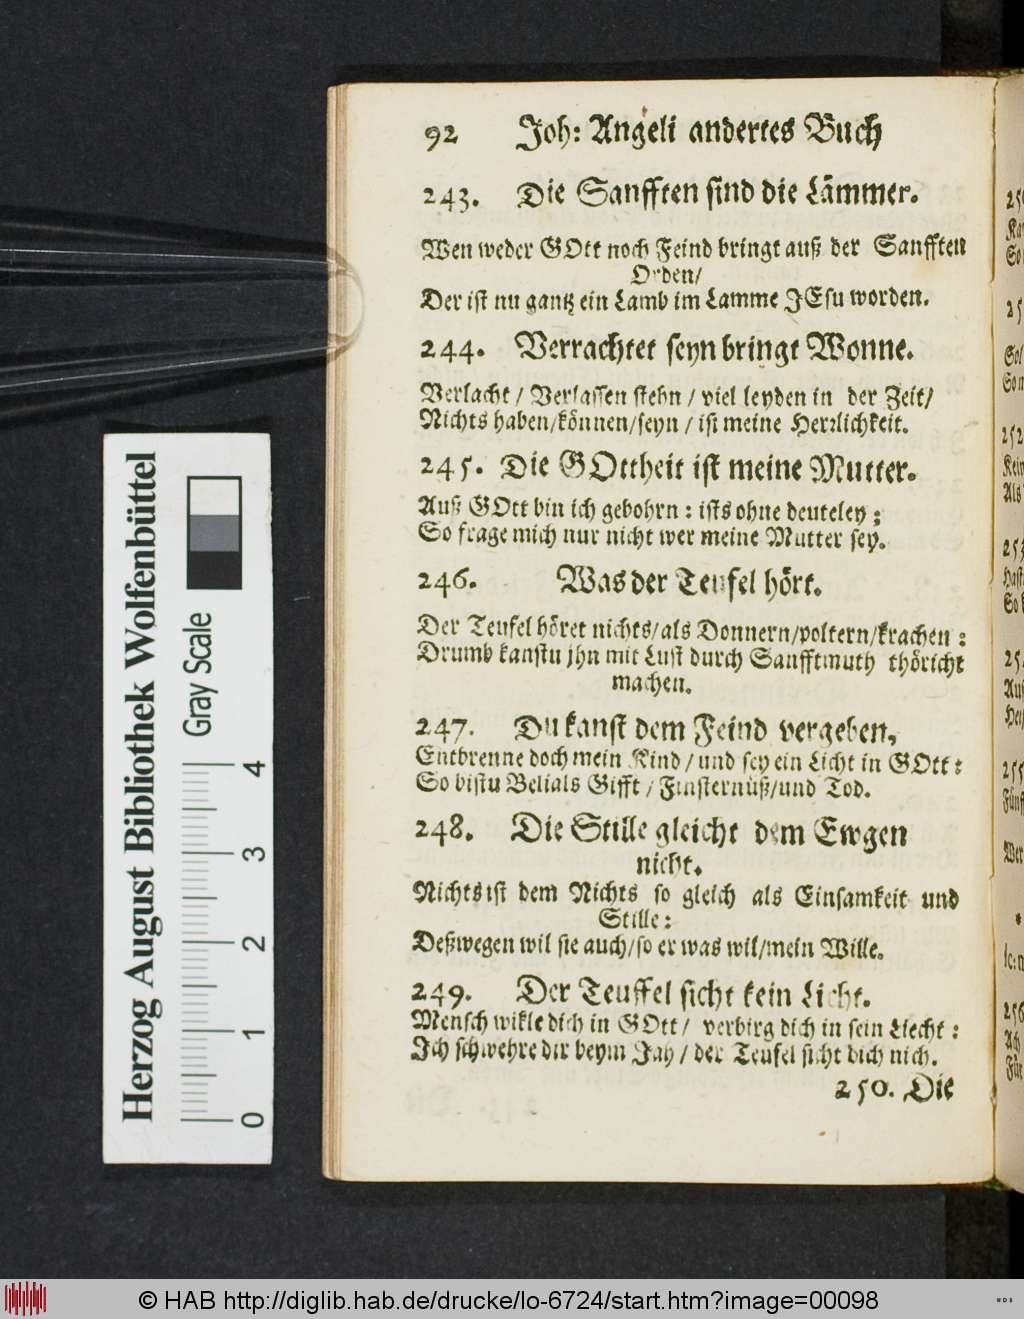 92 Joh: Angeli andertes Buch
243. Die Sanfften sind die Lämmer.
Wen weder GOtt noch Feind bringt auß der Sanfften
Orden/
Der ist nu gantz ein Lamb im Lamme JEsu worden.
244. Verrachtet seyn bringt Wonne.
Verlacht / Verlassen stehn / viel leyden in der Zeit/
Nichts haben/können/seyn / ist meine Herrlichkeit.
245. Die GOttheit ist meine Mutter.
Auß GOtt bin ich gebohrn : ists ohne deuteley ;
So frage mich nur nicht wer meine Mutter sey.
246. Was der Teufel hört.
Der Teufel höret nichts/als Donnern/poltern/krachen :
Drumb kanstu jhn mit Lust durch Sanfftmuth thöricht
machen.
247. Du kanst dem Feind vergeben,
Entbrenne doch mein Kind / und sey ein Licht in GOtt :
So bistu Belials Gifft / Finsternüß/und Tod.
248. Die Stille gleicht dem Ewgen
nicht.
Nichts ist dem Nichts so gleich als Einsamkeit und
Stille :
Deßwegen wil sie auch/so er was wil/mein Wille.
249. Der Teuffel sicht kein Licht.
Mensch wikle dich in GOtt / verbirg dich in sein Liecht :
Ich schwehre dir beym Jah / der Teufel sicht dich nich.
250. Die
Herzog August Bibliothek Wolfenbüttel
Gray Scale
0 1 2 3 4
© HAB http://diglib.hab.de/drucke/lo-6724/start.htm?image=00098